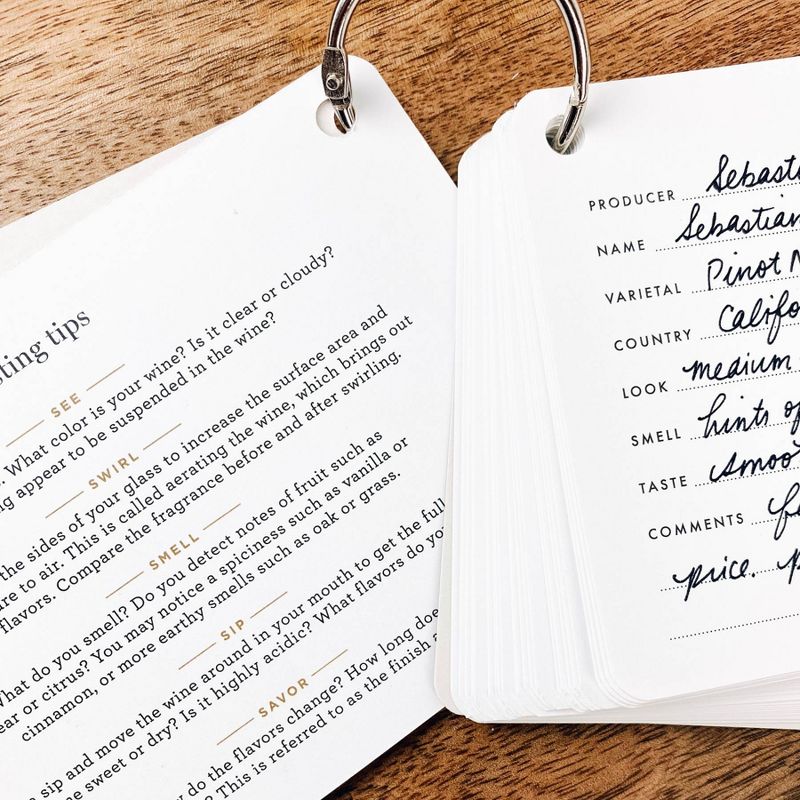 tips
SEE
What color is your wine? Is it clear or cloudy?
appear to be suspended in the wine?
SWIRL
the sides of your glass to increase the surface area and
to air. This is called aerating the wine, which brings out
flavors. Compare the fragrance before and after swirling.
SMELL
What do you smell? Do you detect notes of fruit such as
or citrus? You may notice a spiciness such as vanilla or
cinnamon, or more earthy smells such as oak or grass.
SIP
sip and move the wine around in your mouth to get the full
sweet or dry? Is it highly acidic? What flavors do
SAVOR
do the flavors change? How long
This is referred to as the finish
PRODUCER
NAME Sebastian
VARIETAL Pinot
COUNTRY
LOOK medium
SMELL hints
TASTE
COMMENTS
price.